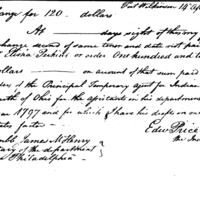 ange for 120 dollars Fort Wilkinson 14 Ap
At days sight of this my
change second of same tenor and date not paid
Elisha Perkins or order One hundred and t
dollars on account of that sum paid
der of the Principal Temporary agent for Indian
outh of Ohio for the specicants in his department
year 1797 and for which I have his draft on
tates facto
Edw Price
ble James McHenry
tary of the department
Philadelphia